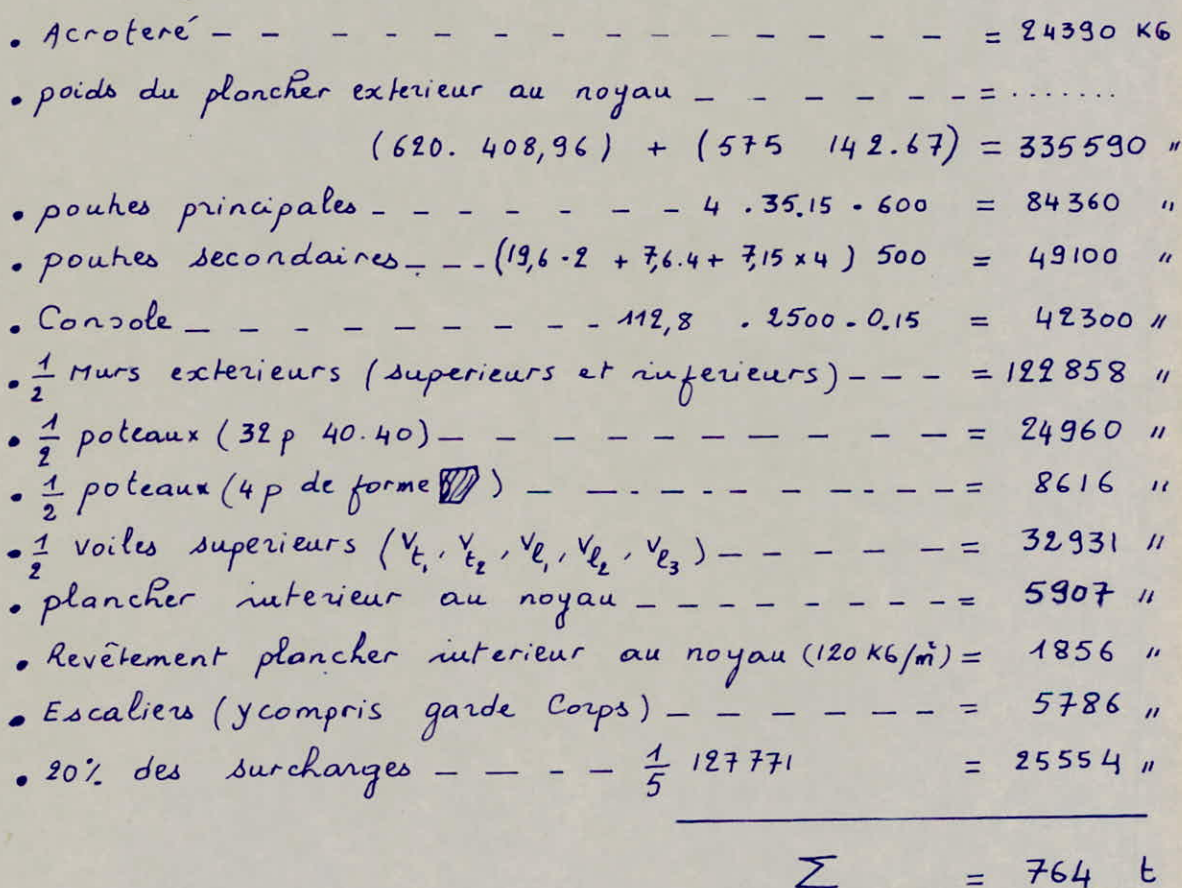 • Acroteré – – – – – – – – – – – – – = 24390 KG
• poids du plancher exterieur au noyau – – – – – – = ........
(620. 408,96) + (575 142.67) = 335590 "
• pouhes principales – – – – – – 4 . 35.15 . 600 = 84360 "
• pouhes secondaires – – – (19,6 . 2 + 7,6.4 + 7,15 x 4 ) 500 = 49100 "
• Console – – – – – – – – – 112,8 . 2500 . 0.15 = 42300 "
• 1/2 Murs exterieurs (superieurs et inferieurs) – – – = 122858 "
• 1/2 poteaux (32 p 40.40) – – – – – – – – – – = 24960 "
• 1/2 poteaux (4 p de forme ) – – – – – – – – – – = 8616 "
• 1/2 voiles superieurs (Vt1, Vt2, Vl1, Vl2, Vl3) – – – – – = 32931 "
• plancher interieur au noyau – – – – – – – – – = 5907 "
• Revêtement plancher interieur au noyau (120 KG/m²) = 1856 "
• Escaliers (y compris garde Corps) – – – – – – = 5786 "
• 20% des surcharges – – – – 1/5 127771 = 25554 "
Σ = 764 t